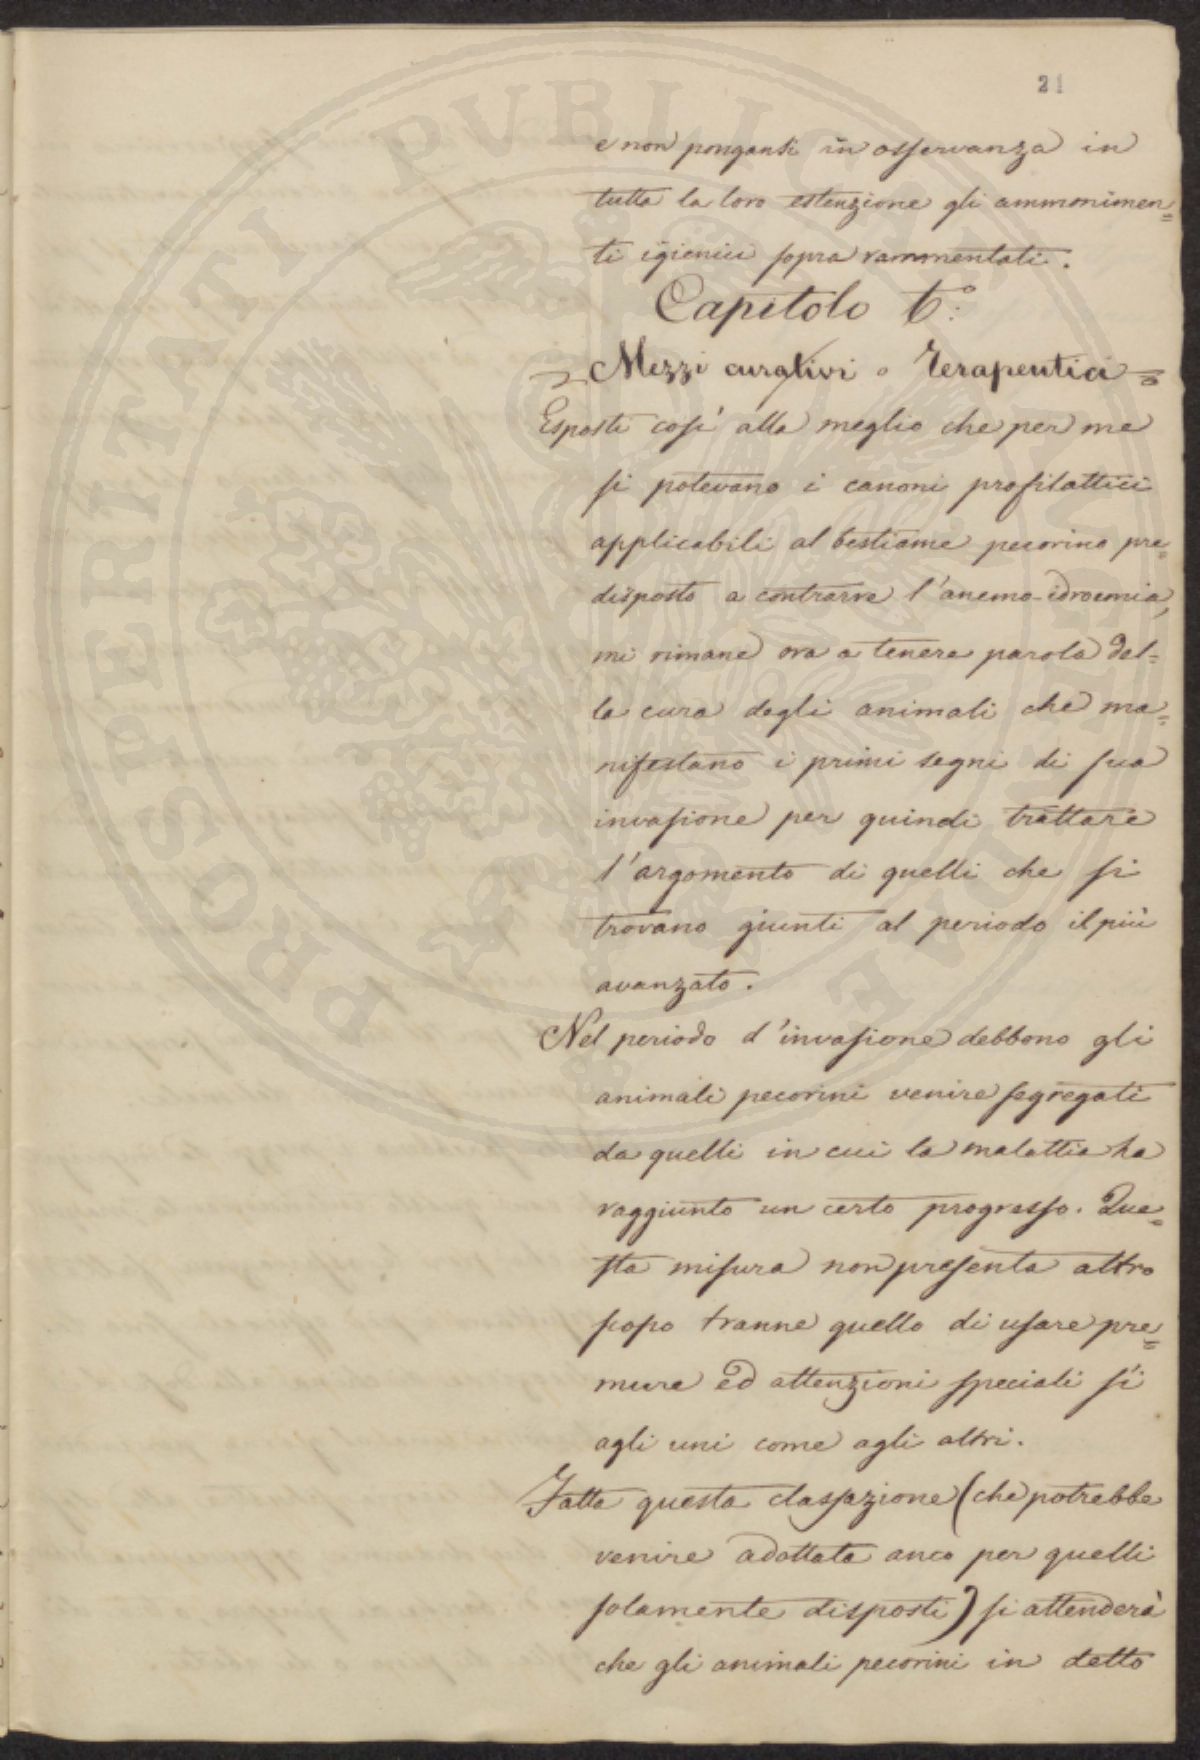 21
PROSPERITATI PUBLICAE AUGENDAE
e non pongansi in osservanza in
tutta la loro estenzione gli ammonimen=
ti igienici sopra rammentati.
Capitolo 6.º
Mezzi curativi o Terapeutici
Esposti così alla meglio che per me
si potevano i canoni profilattici
applicabili al bestiame pecorino pre=
disposto a contrarre l'anemo-idroemia,
mi rimane ora a tenere parola del=
la cura degli animali che ma=
nifestano i primi segni di sua
invasione per quindi trattare
l'argomento di quelli che si
trovano giunti al periodo il più
avanzato.
Nel periodo d'invasione debbono gli
animali pecorini venire segregati
da quelli in cui la malattia ha
raggiunto un certo progresso. Que=
sta misura non presenta altro
scopo tranne quello di usare pre=
mure ed attenzioni speciali sì
agli uni come agli altri.
Fatta questa classazione (che potrebbe
venire adottata anco per quelli
solamente disposti) si attenderà
che gli animali pecorini in detto